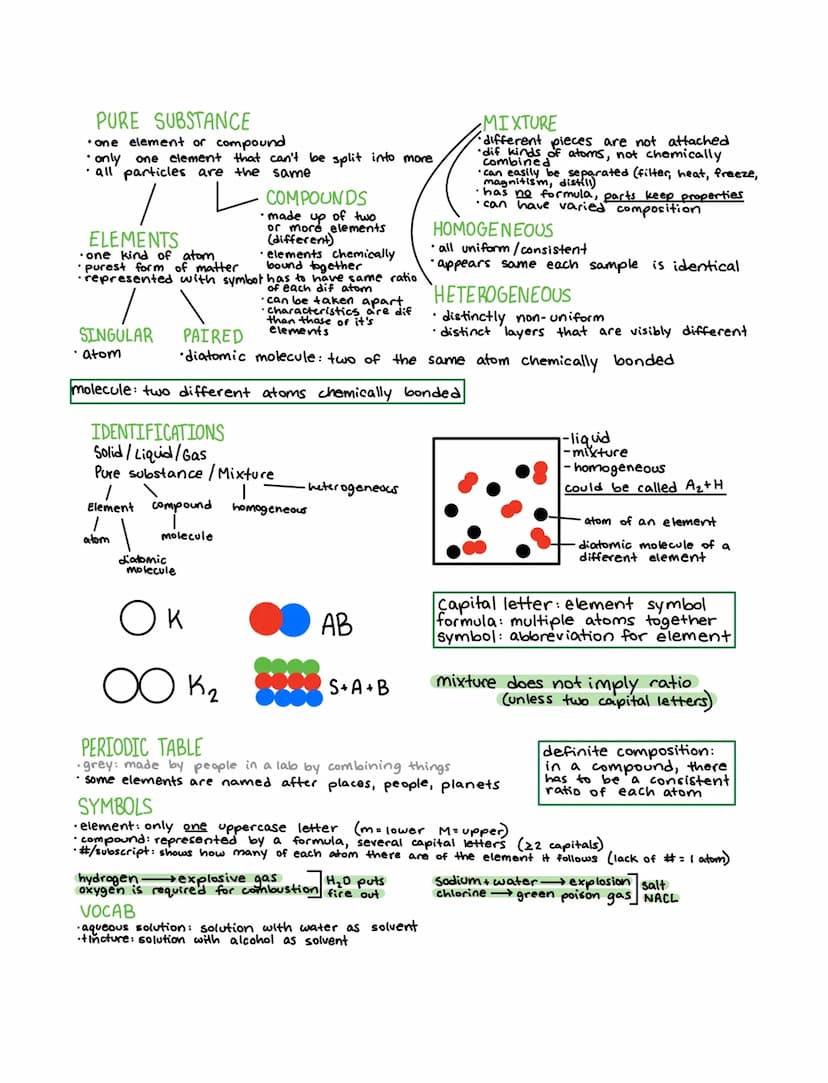 PURE SUBSTANCE
· one element or compound
· only one element that can't be split into more
· all particles are the same
MIXTURE
· different pieces are not attached
· dif kinds of atoms, not chemically
combined
· can easily be separated (filter, heat, freeze,
magnitism, distill)
· has no formula, parts keep properties
· can have varied composition
COMPOUNDS
· made up of two
or more elements
(different)
· elements chemically
bound together
· has to have same ratio
of each dif atom
· can be taken apart
· characteristics are dif
than those of it's
elements
ELEMENTS
· one kind of atom
· purest form of matter
· represented with symbol
HOMOGENEOUS
· all uniform/consistent
· appears same each sample is identical
HETEROGENEOUS
· distinctly non-uniform
· distinct layers that are visibly different
SINGULAR
· atom
PAIRED
· diatomic molecule: two of the same atom chemically bonded
molecule: two different atoms chemically bonded
IDENTIFICATIONS
Solid/Liquid/Gas
Pure substance/Mixture
heterogeneous
Element
compound
homogeneous
atom
molecule
diatomic
molecule
-liquid
-mixture
-homogeneous
could be called A₂+H
atom of an element
diatomic molecule of a
different element
K
AB
K₂
S+A+B
Capital letter: element symbol
formula: multiple atoms together
symbol: abbreviation for element
mixture does not imply ratio
(unless two capital letters)
PERIODIC TABLE
· grey: made by people in a lab by combining things
· some elements are named after places, people, planets
definite composition:
in a compound, there
has to be a consistent
ratio of each atom
SYMBOLS
· element: only one uppercase letter (m=lower M=upper)
· compound: represented by a formula, several capital letters (≥2 capitals)
· #/subscript: shows how many of each atom there are of the element it follows (lack of # = 1 atom)
hydrogen → explosive gas
oxygen is required for combustion
H₂O puts
fire out
Sodium + water → explosion
chlorine → green poison gas
salt
NACL
VOCAB
· aqueous solution: solution with water as solvent
· tincture: solution with alcohol as solvent